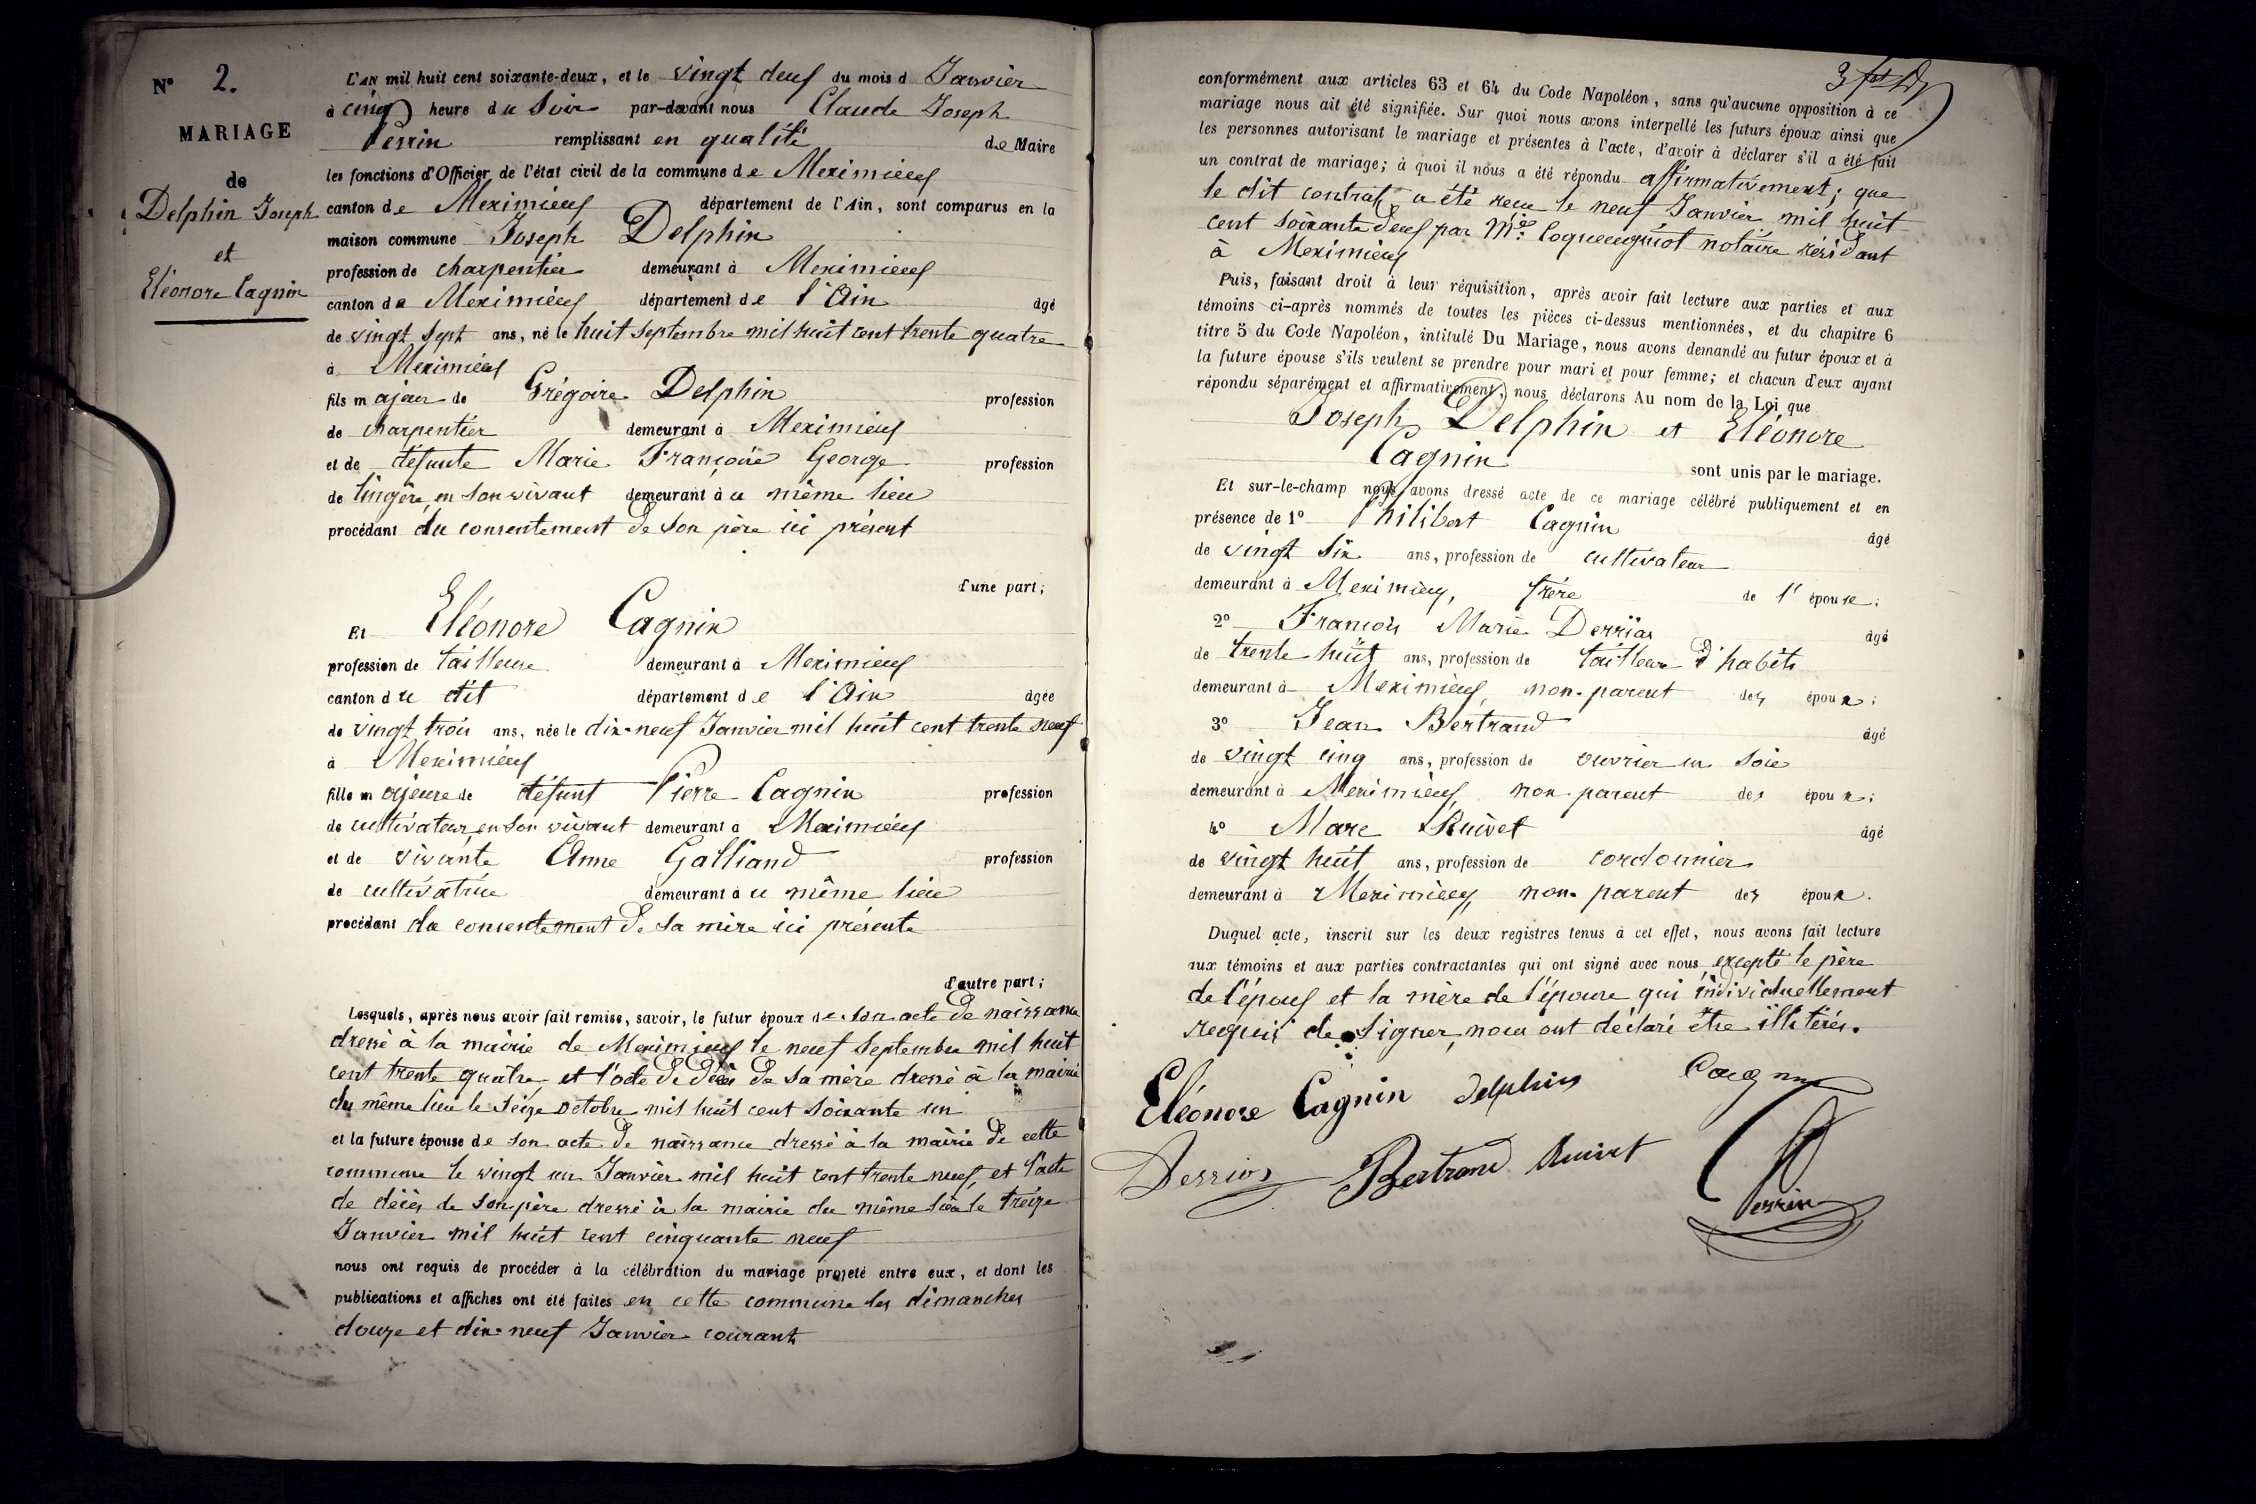 N° 2.
MARIAGE
de
Delphin Joseph
et
Eléonore Cagnin
L'AN mil huit cent soixante-deux, et le vingt deux du mois d Janvier
à cinq heure du Soir par-devant nous Claude Joseph
Perrin remplissant en qualité de Maire
les fonctions d'Officier de l'état civil de la commune de Meximieux
canton de Meximieux département de l'Ain, sont comparus en la
maison commune Joseph Delphin
profession de charpentier demeurant à Meximieux
canton de Meximieux département de l'Ain âgé
de vingt sept ans, né le huit septembre mil huit cent trente quatre
à Meximieux
fils majeur de Grégoire Delphin profession
de charpentier demeurant à Meximieux
et de défunte Marie Françoise George profession
de lingère en son vivant demeurant à ce même lieu
procédant du consentement de son père ici présent
d'une part;
Et Eléonore Cagnin
profession de tailleuse demeurant à Meximieux
canton du dit département de l'Ain âgée
de vingt trois ans, née le dix-neuf Janvier mil huit cent trente neuf
à Meximieux
fille majeure de défunt Pierre Cagnin profession
de cultivateur en son vivant demeurant à Meximieux
et de vivante Anne Galliand profession
de cultivatrice demeurant à ce même lieu
procédant du consentement de sa mère ici présente
d'autre part;
Lesquels, après nous avoir fait remise, savoir, le futur époux de son acte de naissance
dressé à la mairie de Meximieux le neuf Septembre mil huit
cent trente quatre, et l'acte de décès de sa mère dressé à la mairie
du même lieu le seize octobre mil huit cent soixante un
et la future épouse de son acte de naissance dressé à la mairie de cette
commune le vingt un Janvier mil huit cent trente neuf, et l'acte
de décès de son père dressé à la mairie du même lieu le treize
Janvier mil huit cent cinquante neuf
nous ont requis de procéder à la célébration du mariage projeté entre eux, et dont les
publications et affiches ont été faites en cette commune les dimanches
douze et dix-neuf Janvier courant
conformément aux articles 63 et 64 du Code Napoléon, sans qu'aucune opposition à ce
mariage nous ait été signifiée. Sur quoi nous avons interpellé les futurs époux ainsi que
les personnes autorisant le mariage et présentes à l'acte, d'avoir à déclarer s'il a été fait
un contrat de mariage; à quoi il nous a été répondu affirmativement; que
le dit contrat a été reçu le neuf Janvier mil huit
cent soixante deux par notaire résidant
à Meximieux
Puis, faisant droit à leur réquisition, après avoir fait lecture aux parties et aux
témoins ci-après nommés de toutes les pièces ci-dessus mentionnées, et du chapitre 6
titre 5 du Code Napoléon, intitulé Du Mariage, nous avons demandé au futur époux et à
la future épouse s'ils veulent se prendre pour mari et pour femme; et chacun d'eux ayant
répondu séparément et affirmativement, nous déclarons Au nom de la Loi que
Joseph Delphin et Eléonore
Cagnin sont unis par le mariage.
Et sur-le-champ nous avons dressé acte de ce mariage célébré publiquement et en
présence de 1° Philibert Cagnin âgé
de vingt six ans, profession de cultivateur
demeurant à Meximieux, frère de l'épouse;
2° François Marie Derrias âgé
de trente huit ans, profession de tailleur d'habits
demeurant à Meximieux, non-parent des époux;
3° Jean Bertrand âgé
de vingt cinq ans, profession de ouvrier en soie
demeurant à Meximieux, non parent des époux;
4° Marc Ruivet âgé
de vingt huit ans, profession de cordonnier
demeurant à Meximieux, non-parent des époux.
Duquel acte, inscrit sur les deux registres tenus à cet effet, nous avons fait lecture
aux témoins et aux parties contractantes qui ont signé avec nous, excepté le père
de l'époux et la mère de l'épouse qui individuellement
requis de signer, nous ont déclaré être illitérés.
Eléonore Cagnin Delphin Cagnin
Bertrand Ruivet
Perrin